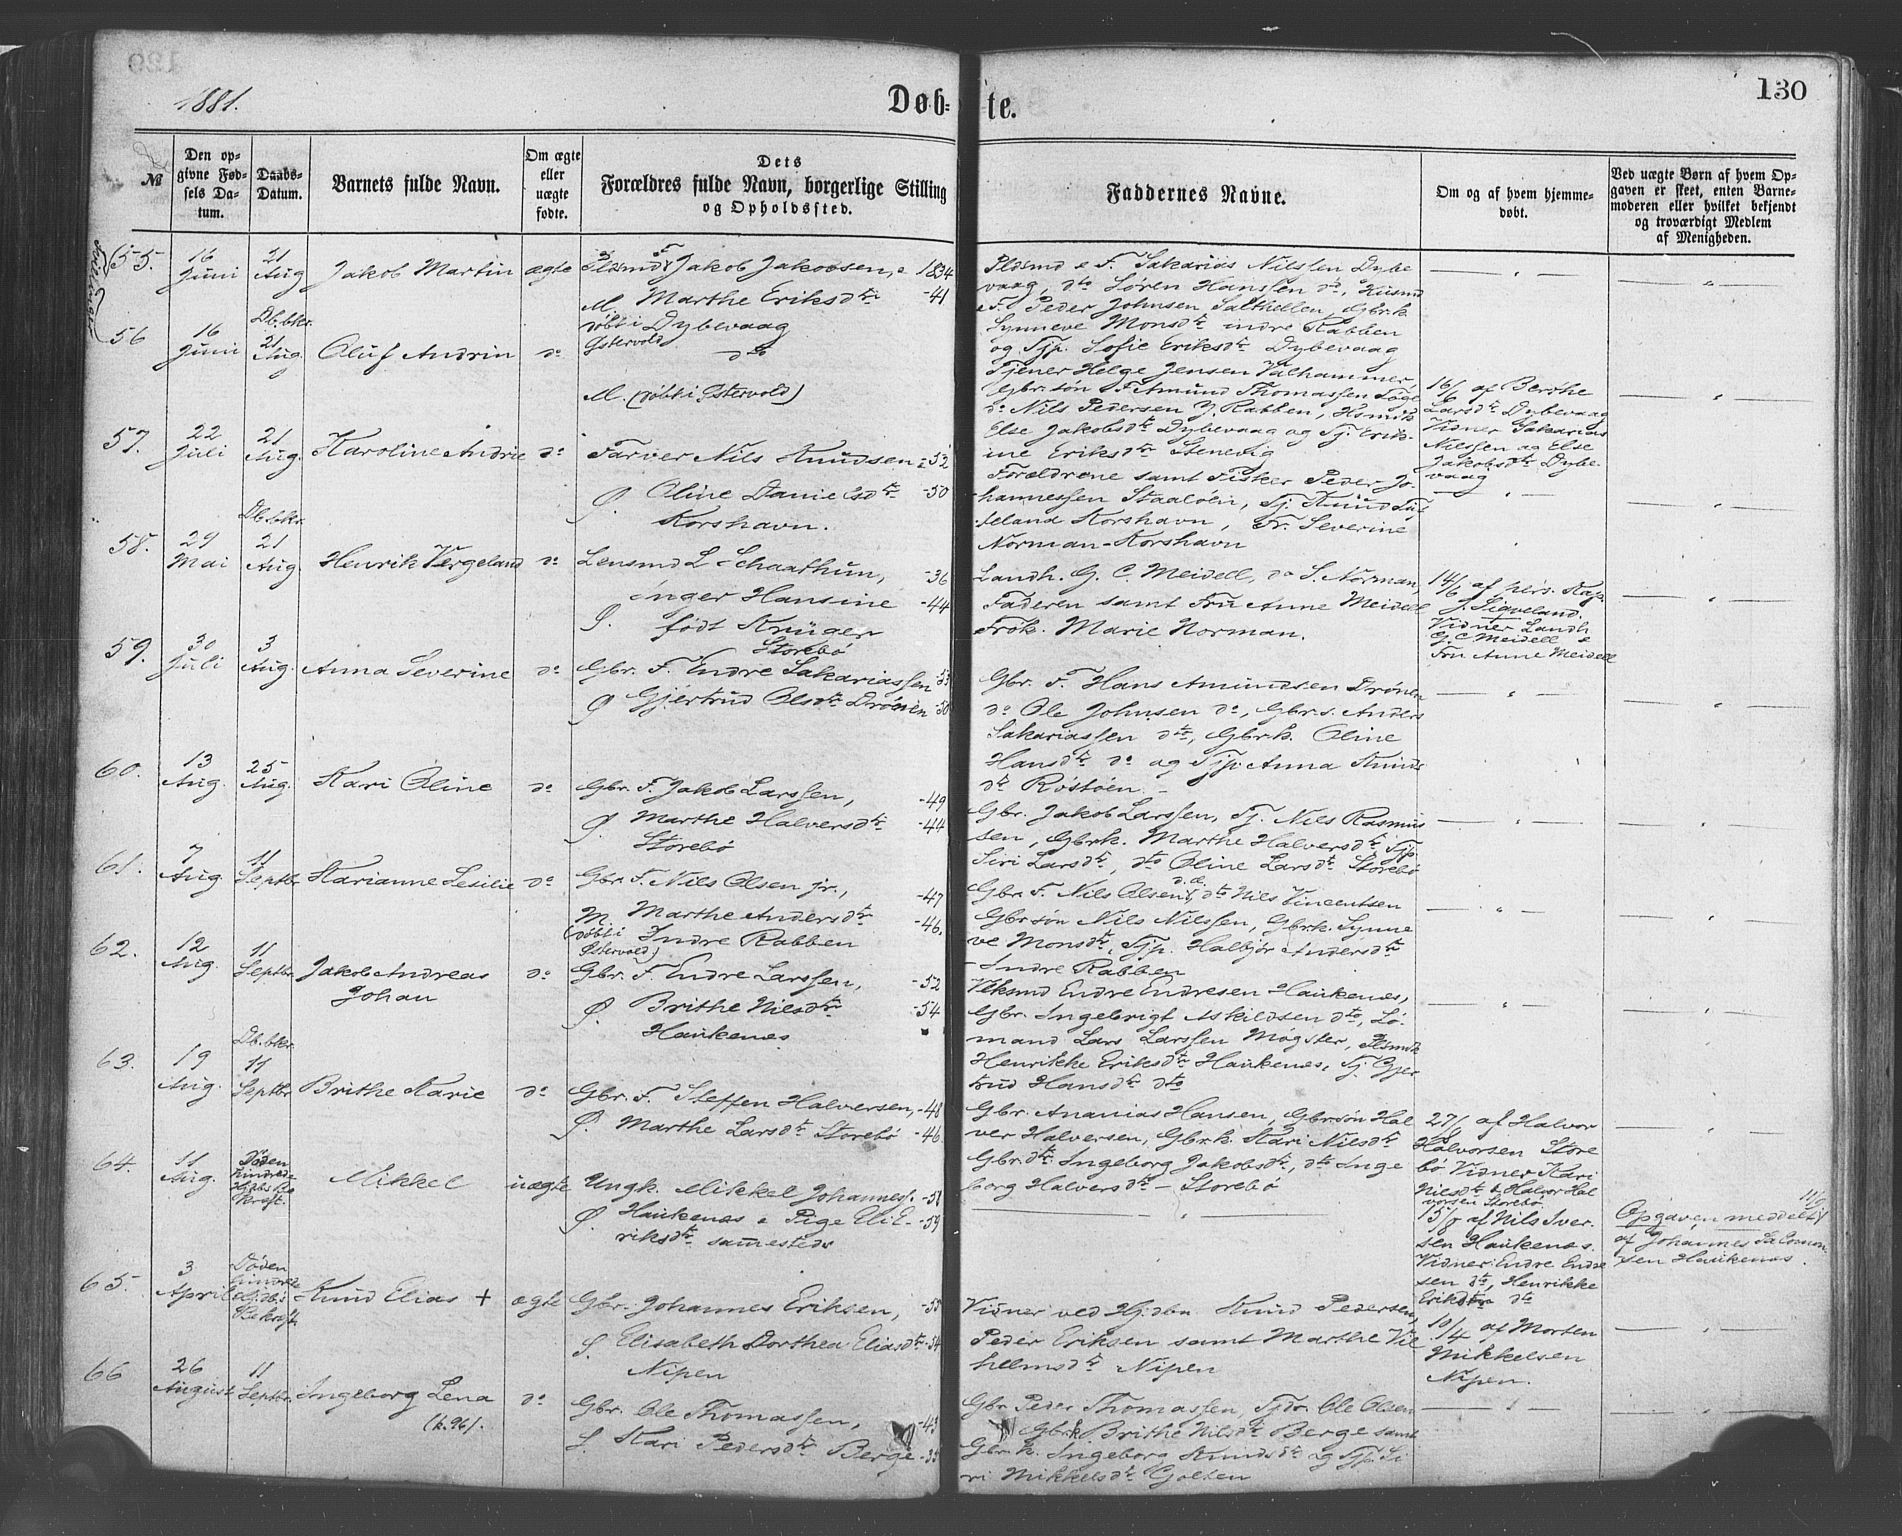 1881.
Døb-te.
130
№
Den opgivne Fødsels Datum.
Daabs-Datum.
Barnets fulde Navn.
Om ægte eller uægte fødte.
Dets Forældres fulde Navn, borgerlige Stilling og Opholdssted.
Faddernes Navne.
Om og af hvem hjemmedøbt.
Ved uægte Børn af hvem Opgaven er skeet, enten Barnemoderen eller hvilket bekjendt og troværdigt Medlem af Menigheden.
55.
16 Juni
21 Aug
Jakob Martin
ægte
Jakob Jakobsen, e 1834
Marthe Eriksdtr -41
M. døbt i Østervold
Dybevaag
Pldsmd e F. Sakarias Nilssen Dybe
vaag, dto Søren Hansen do, Husmd
e F. Peder Johnsen Salthellen, Gbrk.
Synneve Monsdtr indre Rabben
og Tjp. Sofie Eriksdtr Dybevaag
56
16 Juni
Db.bkr. 21 Aug.
Oluf Andrin
do
dto
M. (døbt i Østervold)
Tjener Helge Jensen Valhammer,
Gbr.søn F. Amund Thomassen
do Nils Pedersen Y. Rabben,
Else Jakobsdtr Dybevaag og Tj. Erik-
ine Eriksdtr Stenevig
16/6 af Berthe
Larsdtr Dybevaag
Vidner Sakarias
Nilssen og Else
Jakobsdtr Dybe-
vaag
57.
22 Juli
21 Aug.
Karoline Andrie
do
Farver Nils Knudsen e -52
Ø. Oline Danielsdtr -50
Korshavn.
Forældrene samt Fisker Peder Jo-
hannessen Staaløen, Tj. Knud
Korshavn, Fr. Severine
Norman-Korshavn
58.
29 Mai
Db.bkr. 21 Aug
Henrik Vergeland
do
Lensmd L. Schaathun, -36
Inger Hansine -44
Ø. født Krüger
Storebø
Landh. G. C. Meidell, do S. Norman,
Faderen samt Fru Anne Meidell
Frøk. Marie Norman.
14/6 af pers. Kap.
J. Sigveland.
Vidner Landh
G. C Meidell e
Fru Anne Meidell
59.
30 Juli
3 Aug.
Anna Severine
do
Gbr. F. Endre Sakariassen -53
Ø Gjertrud Olsdtr Drönen -50
Gbr. F. Hans Amundsen Drönen
do Ole Johnsen do, Gbr.s. Anders
Sakariassen dto, Gbrk. Oline
Hansdtr do og Tjp. Anna Knuds
dtr Røstøen.
60.
13 Aug.
25 Aug.
Kari Oline
do
Gbr. F. Jakob Larssen, -49
Ø. Marthe Halversdtr -44
Storebø
Gbr. Jakob Larssen, Tj. Nils Rasmus
sen, Gbrk. Marthe Halversdtr Tjp.
Siri Larsdtr, dto Oline Larsdtr Storebø
61.
7 Aug
11 Septbr
Karianne Sesilie
do
Gbr. F. Nils Olsen jr., -47
Marthe Andersdtr -46.
M. (døbt i Østervold)
Indre Rabben
Gbr. F. Nils Olsen d. æ., dto Nils Vincentsen
Gbrsøn Nils Nilssen, Gbrk. Synne
ve Monsdtr, Tjp. Halbjør Andersdtr
Indre Rabben
62.
12 Aug.
11 Septbr
Jakob Andreas
Johan
do
Gbr. F. Endre Larssen, -52
Ø. Brithe Nilsdtr -54
Haukenæs
Endre Endresen Haukenæs,
Gbr. Ingebrigt Askildsen dto, Lø-
mand Lars Larssen Møgster,
Henrikke Eriksdtr Haukenæs, Tj. Gjer
trud Hansdtr dto
63.
19 Aug.
Db.bkr. 11 Septbr
Brithe Karie
do
Gbr. F. Steffen Halversen, -48
Ø. Marthe Larsdtr Storebø -46
Gbr. Ananias Hansen, Gbrsøn Hal
ver Halversen, Gbrk. Kari Nilsdtr
Gbrdtr. Ingeborg Jakobsdtr, dto Inge
borg Halversdtr - Storebø
27/ af Halvor
Halvorsen Store
bø Vidner Kari
Nilsdtr & Halvor Hal
vorsen Storebø
64.
11 Aug.
Døden hindrede Daabs Bekræft.
Mikkel
uægte
Ungk. Mikkel Johanness. -51
Haukenæs e Pige Eli E- -59
Ø. riksdtr sammesteds
15/8 af Nils Iver
sen Haukenæs.
Vidner: Endre Endre
sen dto, Henrikke
Eriksdtr dto
Opgaven meddelt
af Johannes Salomon
sen Haukenæs.
65.
3 April
Døden hindrede Daabs Bekræft.
Knud Elias +
ægte
Gbr. Johannes Eriksen, -55
S. Elisabeth Dorthea Eliasdtr -54
Nipen
Vidner ved Hj.dbn Knud Pedersen,
Peder Eriksen samt Marthe Vil
helmsdtr Nipen
10/4 af Morten
Mikkelsen
Nipen.
66
26 August
11 Septbr.
Ingeborg Lena
(k.96).
do
Gbr. Ole Thomassen, -43
S. Kari Pedersdtr Berge -39
Gbr. Peder Thomassen, Ole Olsen
Gbrk Brithe Nilsdtr Berge samt
Gbrk. Ingeborg Knudsdtr og Tjp. Si
ri Mikkelsdtr Golten